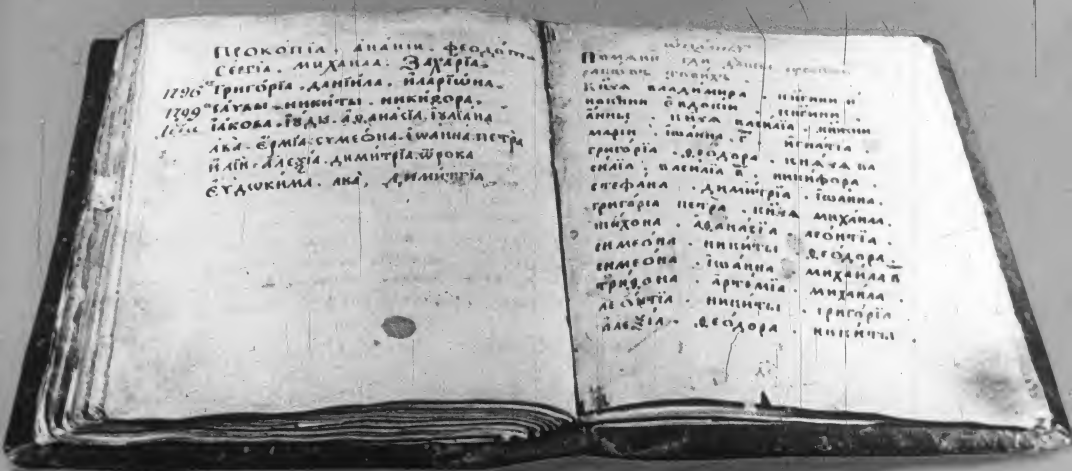 ПРОКОПЇА · АНАНЇИ · ФЕОДОТА
СЕРГЇА · МИХАИЛА · ЗАХАРЇА ·
1796 ГРИГОРЇА · ДАНЇИЛА · ИЛАРЇѠНА ·
1799 САУВЫ · НИКИТЫ · НИКИѲОРА ·
ІАКОВА · ІУДЫ · АѲАНАСЇА · ІУЛЇАНА
ЛВА · ЄРМЇА · СУМЕѠНА · ІѠАННА · ПЕТРА
ИЛЇИ · АЛЕѮЇА · ДИМИТРЇА · ѾРОКА
ЄУДѠКИМА · ЛВА · ДИМИТРЇА
ПОМѦНИ ГДИ ДШЫ
КНѦЗѦ ВЛАДИМИРА · КНГИНИ И
КНГИНИ ЄВДОКЇИ · КНГИНИ ·
АННЫ · КНѦЗѦ ВАСИЛЇА · КНЖНИ
МАРЇИ · ІѠАННА Г҃ · ИГНАТЇА ·
ГРИГОРЇА · ѲЕОДОРА · КНѦЗѦ ВА
СИЛЇА · ВАСИЛЇА В҃ · НИКИФОРА ·
СТЕФАНА · ДИМИТРЇА · ІѠАННА ·
ГРИГОРЇА ПЕТРА · КНѦЗѦ МИХАИЛА ·
ТИХОНА · АѲАНАСЇА · ЛЕОНТЇА ·
СИМЕОНА · НИКИТЫ · ѲЕОДОРА ·
СИМЕОНА · ІѠАННА · МИХАИЛА В҃
ТРИФОНА · АРТЕМЇА · МИХАИЛА ·
ЛЕОНТЇА · НИКИТЫ · ГРИГОРЇА ·
АЛЕѮЇА · ѲЕОДОРА · НИКИТЫ ·